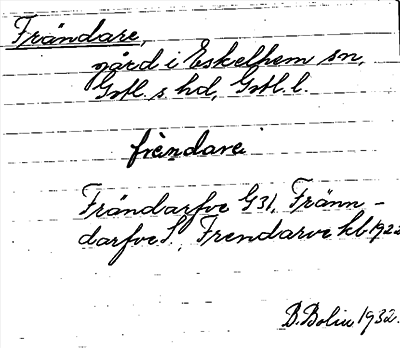 Frändare,
gård i Eskelhem sn,
Gotl. s. hd, Gotl. l.
frèndare
Frändarfve G31, Fränn-
darfve S., Frendarve kb 1922
D. Bolin 1932.